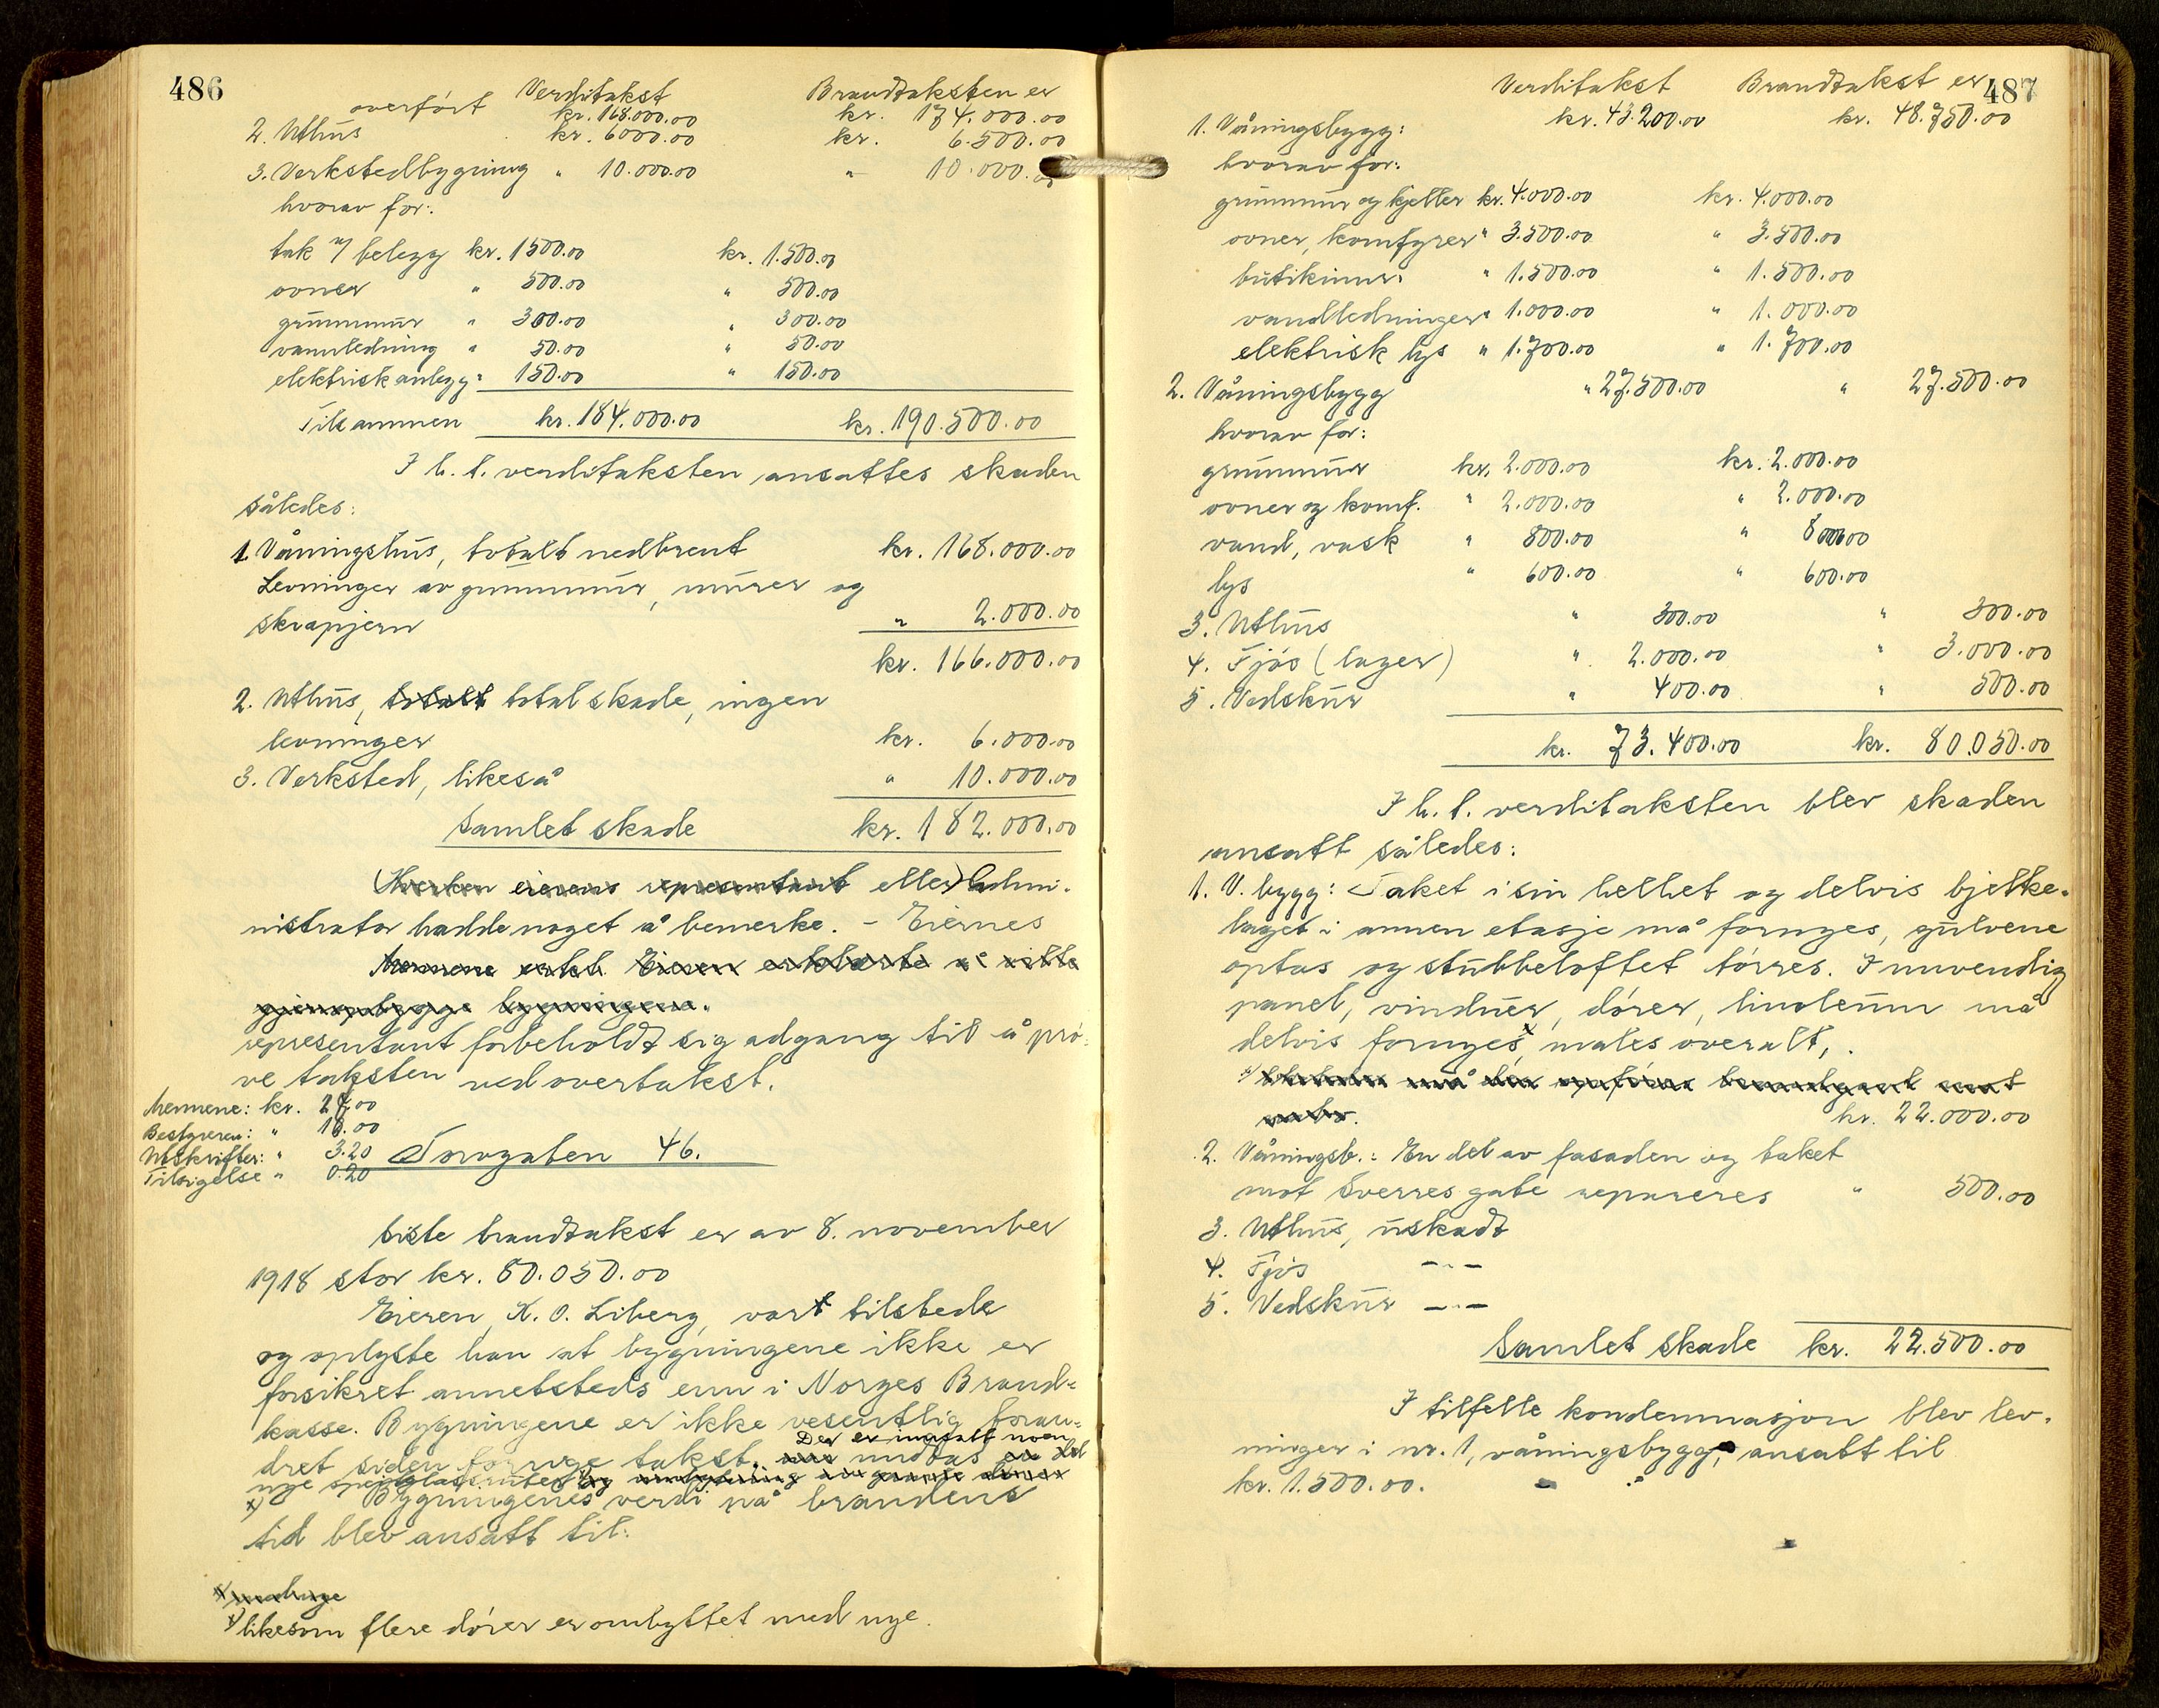 486
Verditakst Brandtaksten er
overført kr. 168.000.00 kr. 174.000.00
2. Uthus kr. 6000.00 kr. 6.500.00
3. Verkstedbygning " 10.000.00 " 10.000.00
hvorav for:
tak m/ belegg kr. 1500.00 kr. 1.500.00
ovner " 500.00 " 500.00
grunnmur " 300.00 " 300.00
vannledning " 50.00 " 50.00
elektrisk anlegg " 150.00 " 150.00
Tilsammen kr. 184.000.00 kr. 190.500.00
I h. t. verditaksten ansattes skaden
således:
1. Våningshus, totalt nedbrent kr. 168.000.00
Levninger av grunnmur, murer og
skrapjern " 2.000.00
kr. 166.000.00
2. Uthus, totalt total skade, ingen
levninger kr. 6.000.00
3. Verksted, likeså " 10.000.00
Samlet skade kr. 182.000.00
(Hverken eierens representant eller) Admi-
nistrator hadde noget å bemerke. - Eiernes
Mennene Eieren erklærte å ville
gjenopbygge bygningene.
representant forbeholdt sig adgang til å prø-
ve taksten ved overtakst.
Mennene: kr. 27.00
Bestyreren: " 18.00
Utskrifter: " 3.20
Tilsigelse " 0.20
Torvgaten 46.
Siste brandtakst er av 8. november
1918 stor kr. 80.050.00
Eieren, K. O. Liberg, var tilstede
og oplyste han at bygningene ikke er
forsikret annetsteds enn i Norges Brand-
kasse. Bygningene er ikke vesentlig foran-
Der er innsatt noen
dret siden forrige takst. undtas en del
nye speilglassruter og
x) Bygningenes verdi på brandens
tid blev ansatt til:
x) likesom flere dører er ombyttet med nye.
487
Verditakst Brandtakst er
1. Våningsbygg: kr. 43.200.00 kr. 48.750.00
hvorav for:
grunnmur og kjeller kr. 4.000.00 kr. 4.000.00
ovner, komfyrer " 3.500.00 " 3.500.00
butikinnr. " 1.500.00 " 1.500.00
vandledninger " 1.000.00 " 1.000.00
elektrisk lys " 1.700.00 " 1.700.00
2. Våningsbygg " 27.500.00 " 27.500.00
hvorav for:
grunnmur kr. 2.000.00 kr. 2.000.00
ovner og komf. " 2.000.00 " 2.000.00
vand, vask " 800.00 " 800.00
lys " 600.00 " 600.00
3. Uthus " 300.00 " 300.00
4. Fjøs (lager) " 2.000.00 " 3.000.00
5. Vedskur " 400.00 " 500.00
kr. 73.400.00 kr. 80.050.00
I h. t. verditaksten blev skaden
ansatt således:
1. V. bygg: Taket i sin helhet og delvis bjelke-
laget i annen etasje må fornyes, gulvene
optas og stubbeloftet tørres. Innvendig
panel, vinduer, dører, linoleum må
delvis fornyes, males overalt,
må opføres brandgavl mot
kr. 22.000.00
2. Våningsb.: En del av fasaden og taket
mot Sverres gate repareres " 500.00
3. Uthus, uskadt
4. Fjøs -"-
5. Vedskur -"-
Samlet skade kr. 22.500.00
I tilfelle kondemnasjon blev lev-
ninger i nr. 1, våningsbygg, ansatt til
kr. 1.500.00.